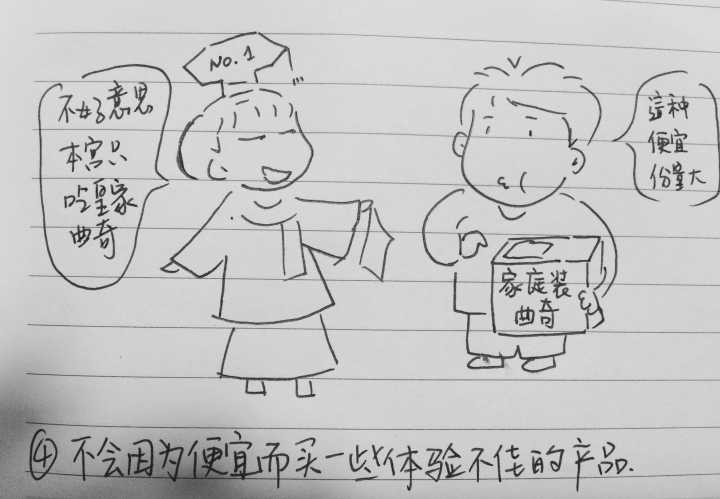 NO.1
不好意思
本宫只
吃皇家
曲奇
這种
便宜
份量大
家庭装
曲奇
④不会因为便宜而买一些体验不佳的产品.